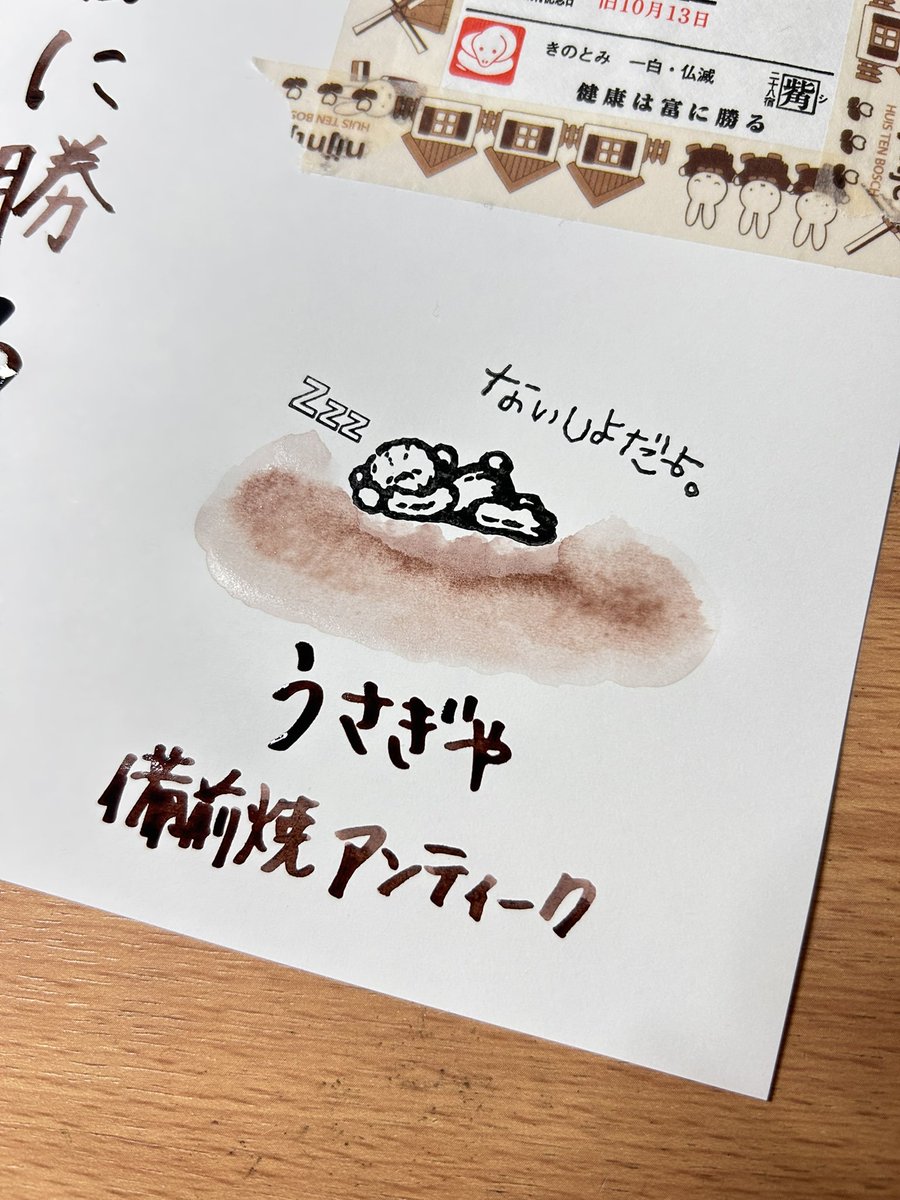 旧10月13日
きのとみ 一白・仏滅
二十八宿 觜 シ
健康は富に勝る
HUIS TEN BOSCH
nijntje
に勝る
Zzz
ないしよだよ。
うさぎや
備前焼 アンティーク